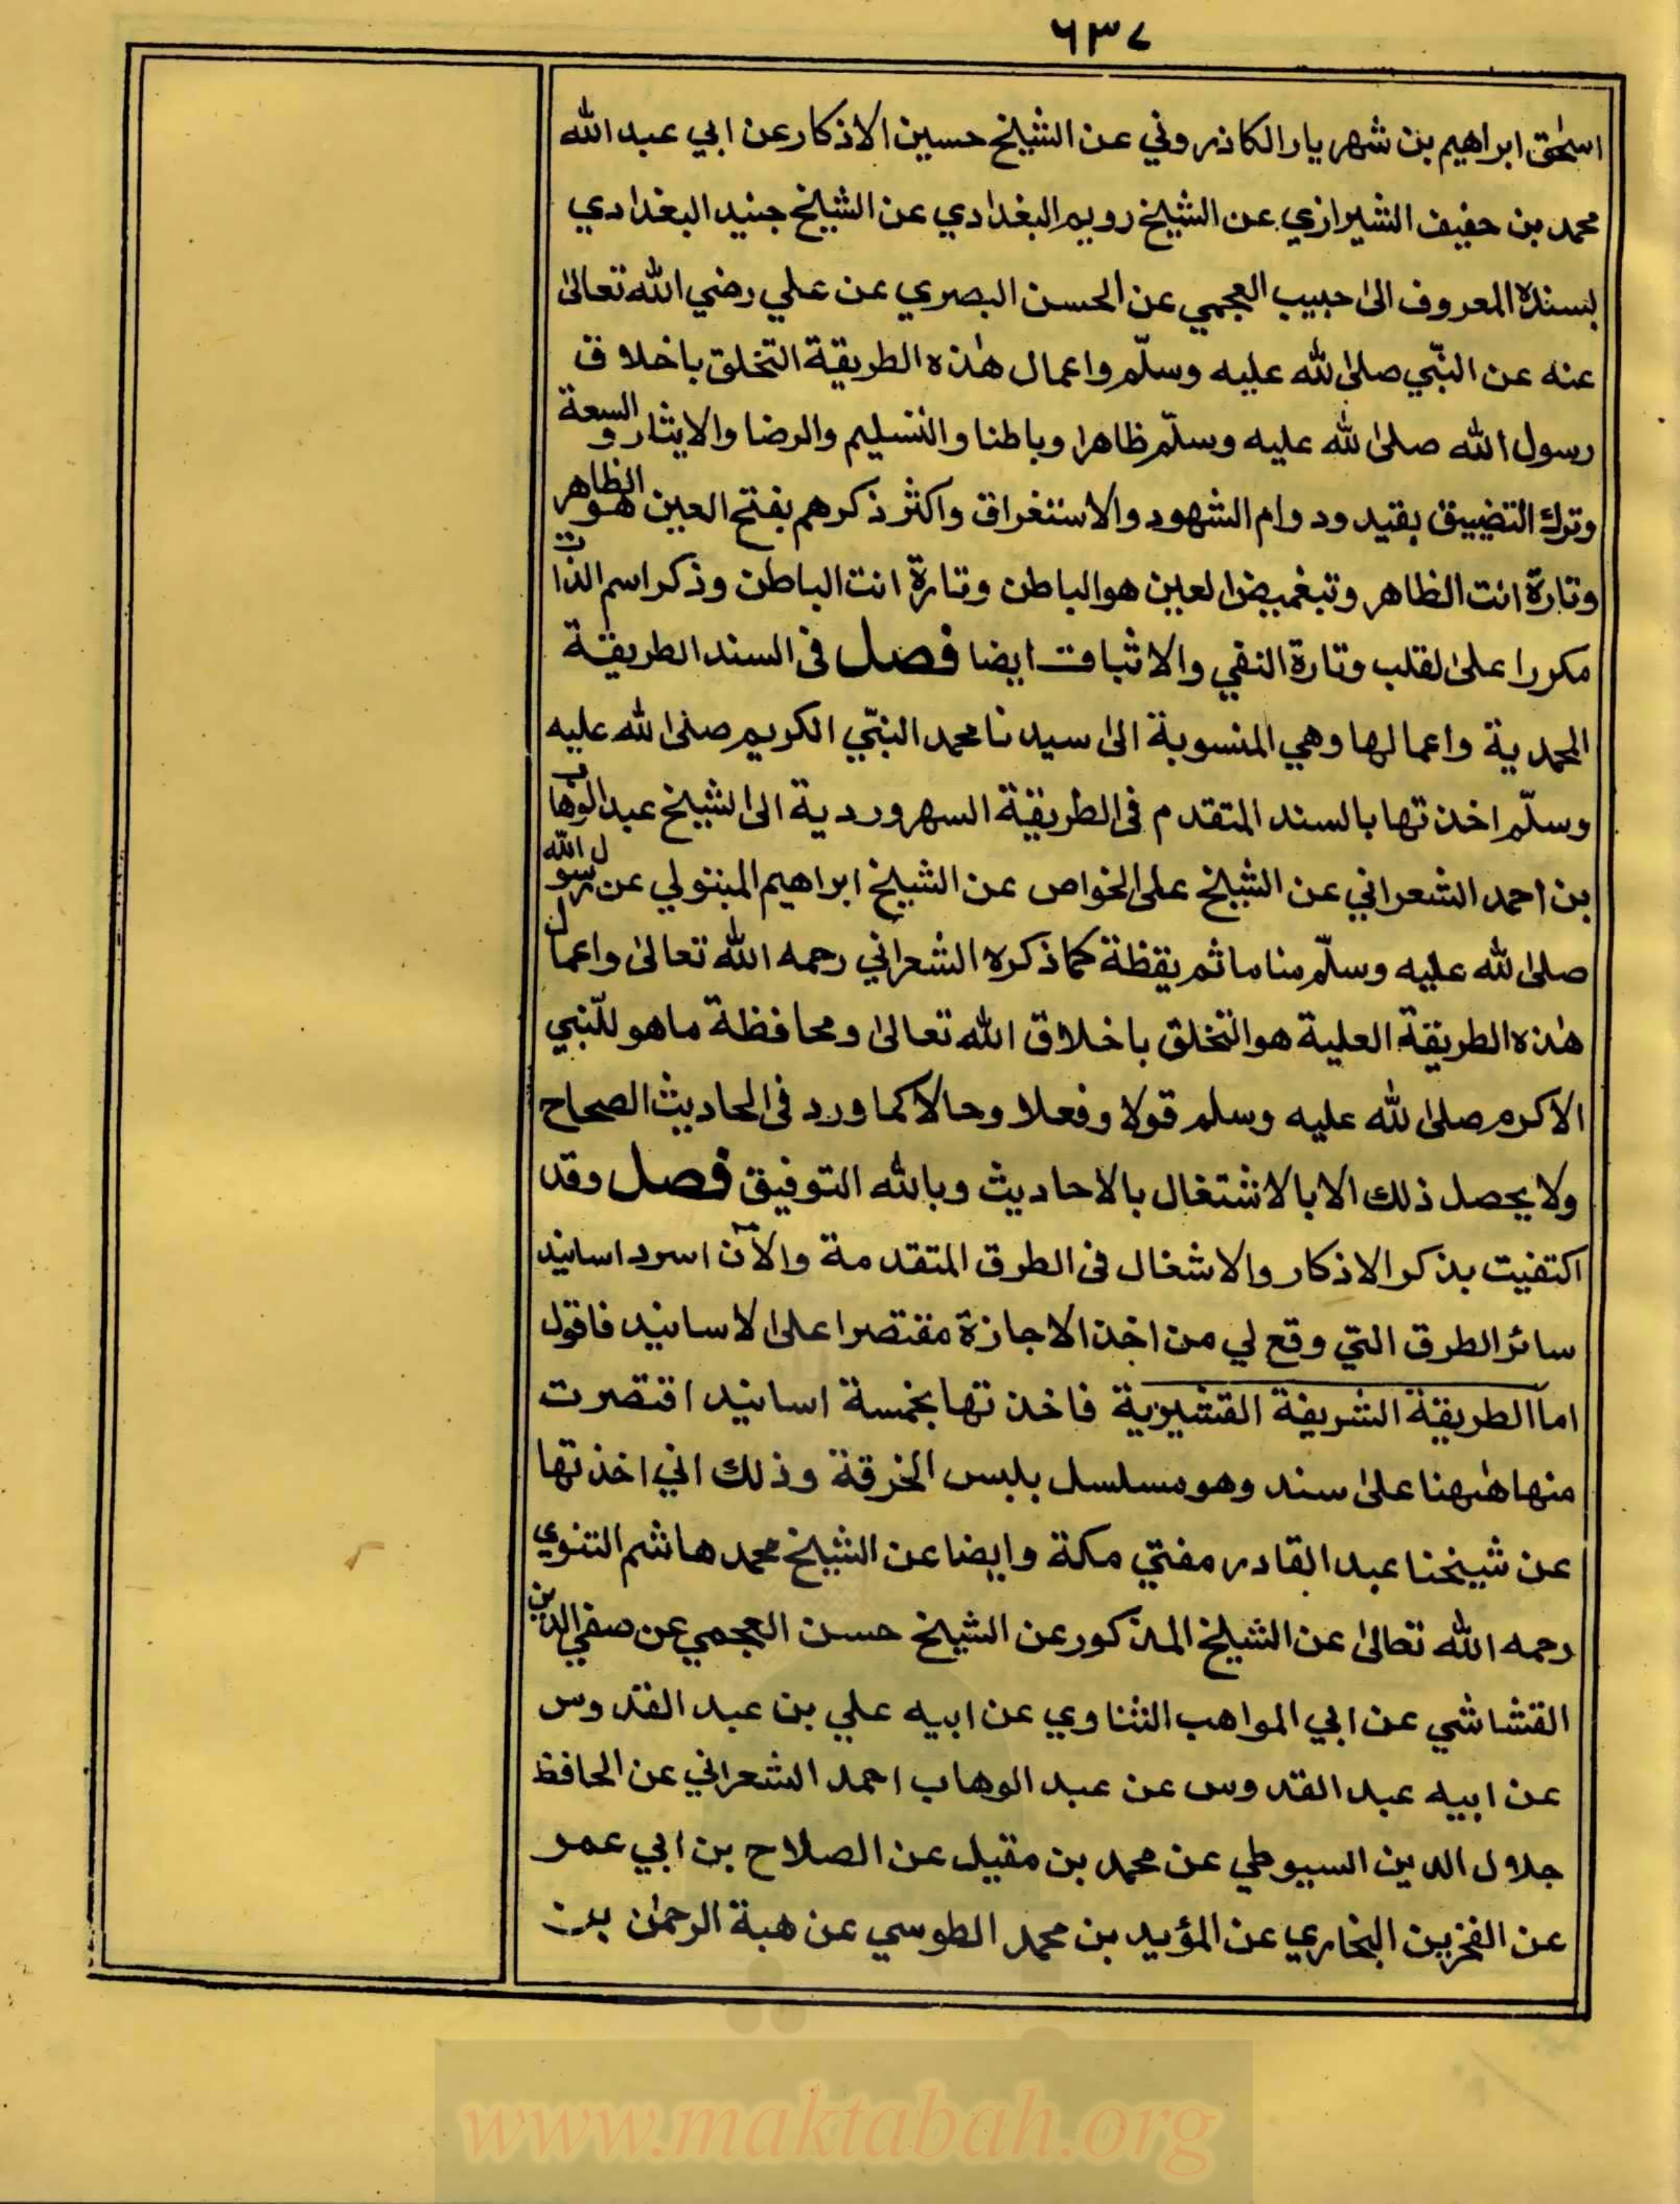 ٦٣٧
اسحٰق ابراهيم بن شهريار الكاذروني عن الشيخ حسين الاذكار عن ابي عبد الله
محمد بن حفيف الشيرازي عن الشيخ رويم البغدادي عن الشيخ جنيد البغدادي
بسنده المعروف الىٰ حبيب العجمي عن الحسن البصري عن علي رضي الله تعالىٰ
عنه عن النبّي صلى الله عليه وسلّم واعمال هٰذه الطريقة التخلق باخلاق
رسول الله صلى الله عليه وسلّم ظاهرا وباطنا والتسليم والرضا والايثار والسعة
وترك التضييق بقيد ودوام الشهود والاستغراق واكثر ذكرهم بفتح العين هو الظاهر
وتارة انت الظاهر وتبغميض العين هو الباطن وتارة انت الباطن وذكر اسم الذات
مكررا على القلب وتارة النفي والاثبات ايضا فصل فى السند الطريقة
المحمدية واعمالها وهي المنسوبة الىٰ سيدنا محمد النبّي الكريم صلى الله عليه
وسلّم اخذتها بالسند المتقدم فى الطريقة السهروردية الى الشيخ عبد الوهاب
بن احمد الشعراني عن الشيخ على الخواص عن الشيخ ابراهيم المبتولي عن رسول الله
صلى الله عليه وسلّم مناما ثم يقظة كما ذكره الشعراني رحمه الله تعالىٰ واعمال
هٰذه الطريقة العلية هو التخلق باخلاق الله تعالىٰ ومحافظة ما هو للنّبي
الاكرم صلى الله عليه وسلم قولا وفعلا وحالا كما ورد فى الحاديث الصحاح
ولا يحصل ذلك الا بالاشتغال بالاحاديث وبالله التوفيق فصل وقد
اكتفيت بذكر الاذكار والاشغال فى الطرق المتقدمة والآن اسرد اسانيد
سائر الطرق التي وقع لي من اخذ الاجازة مقتصرا على الاسانيد فاقول
اما الطريقة الشريفة القشيرية فاخذتها بخمسة اسانيد اقتصرت
منها هٰهنا علىٰ سند وهو مسلسل بلبس الخرقة وذلك اني اخذتها
عن شيخنا عبد القادر مفتي مكة وايضا عن الشيخ محمد هاشم التتوي
رحمه الله تعالىٰ عن الشيخ المذكور عن الشيخ حسن العجمي عن صفي الدين
القشاشي عن ابي المواهب الشناوي عن ابيه علي بن عبد القدوس
عن ابيه عبد القدوس عن عبد الوهاب احمد الشعراني عن الحافظ
جلال الدين السيوطي عن محمد بن مقبل عن الصلاح بن ابي عمر
عن الفخر بن البخاري عن المؤيد بن محمد الطوسي عن هبة الرحمٰن بن
www.maktabah.org